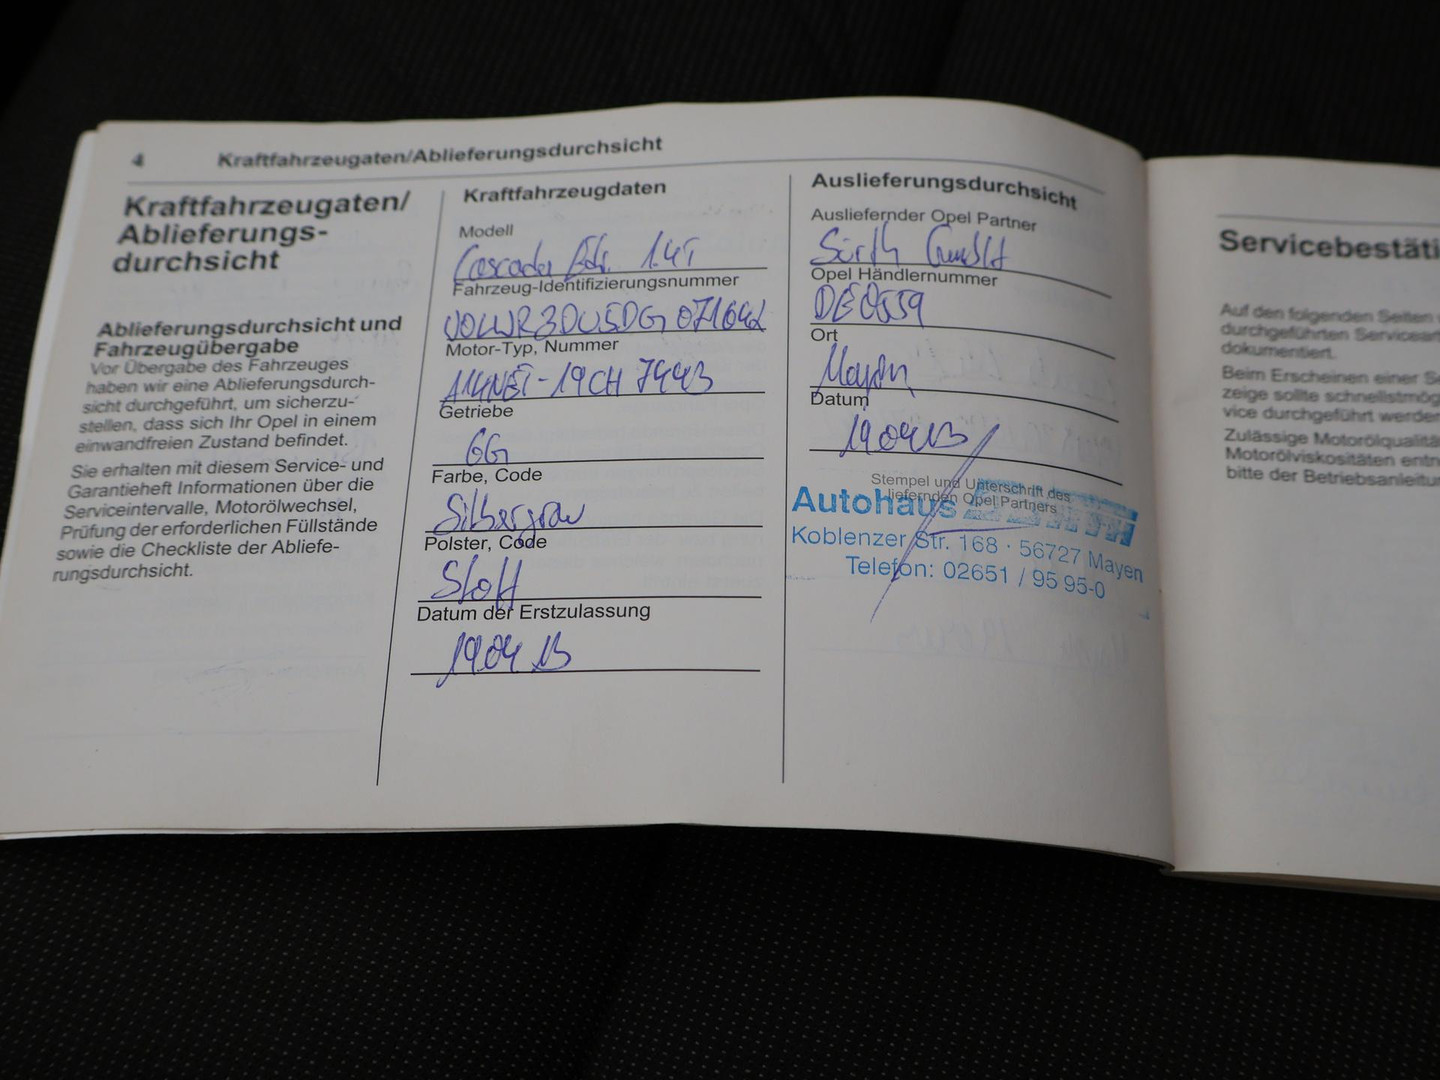 4 Kraftfahrzeugaten/Ablieferungsdurchsicht
Kraftfahrzeugaten/
Ablieferungs-
durchsicht
Ablieferungsdurchsicht und
Fahrzeugübergabe
Vor Übergabe des Fahrzeuges
haben wir eine Ablieferungsdurch-
sicht durchgeführt, um sicherzu-
stellen, dass sich Ihr Opel in einem
einwandfreien Zustand befindet.
Sie erhalten mit diesem Service- und
Garantieheft Informationen über die
Serviceintervalle, Motorölwechsel,
Prüfung der erforderlichen Füllstände
sowie die Checkliste der Abliefe-
rungsdurchsicht.
Kraftfahrzeugdaten
Modell
Cascada Edi. 1.4T
Fahrzeug-Identifizierungsnummer
Motor-Typ, Nummer
Getriebe
6G
Farbe, Code
Silbergrau
Polster, Code
Stoff
Datum der Erstzulassung
19.04.13
Auslieferungsdurchsicht
Ausliefernder Opel Partner
GmbH
Opel Händlernummer
DE0559
Ort
Mayen
Datum
19.04.13
Stempel und Unterschrift des
liefernden Opel Partners
Autohaus
Koblenzer Str. 168 · 56727 Mayen
Telefon: 02651 / 95 95-0
Servicebestäti
Auf den folgenden Seiten
durchgeführten Servicear
dokumentiert.
Beim Erscheinen einer Se
zeige sollte schnellstmög
vice durchgeführt werde
Zulässige Motorölqualitä
Motorölviskositäten entn
bitte der Betriebsanleitu